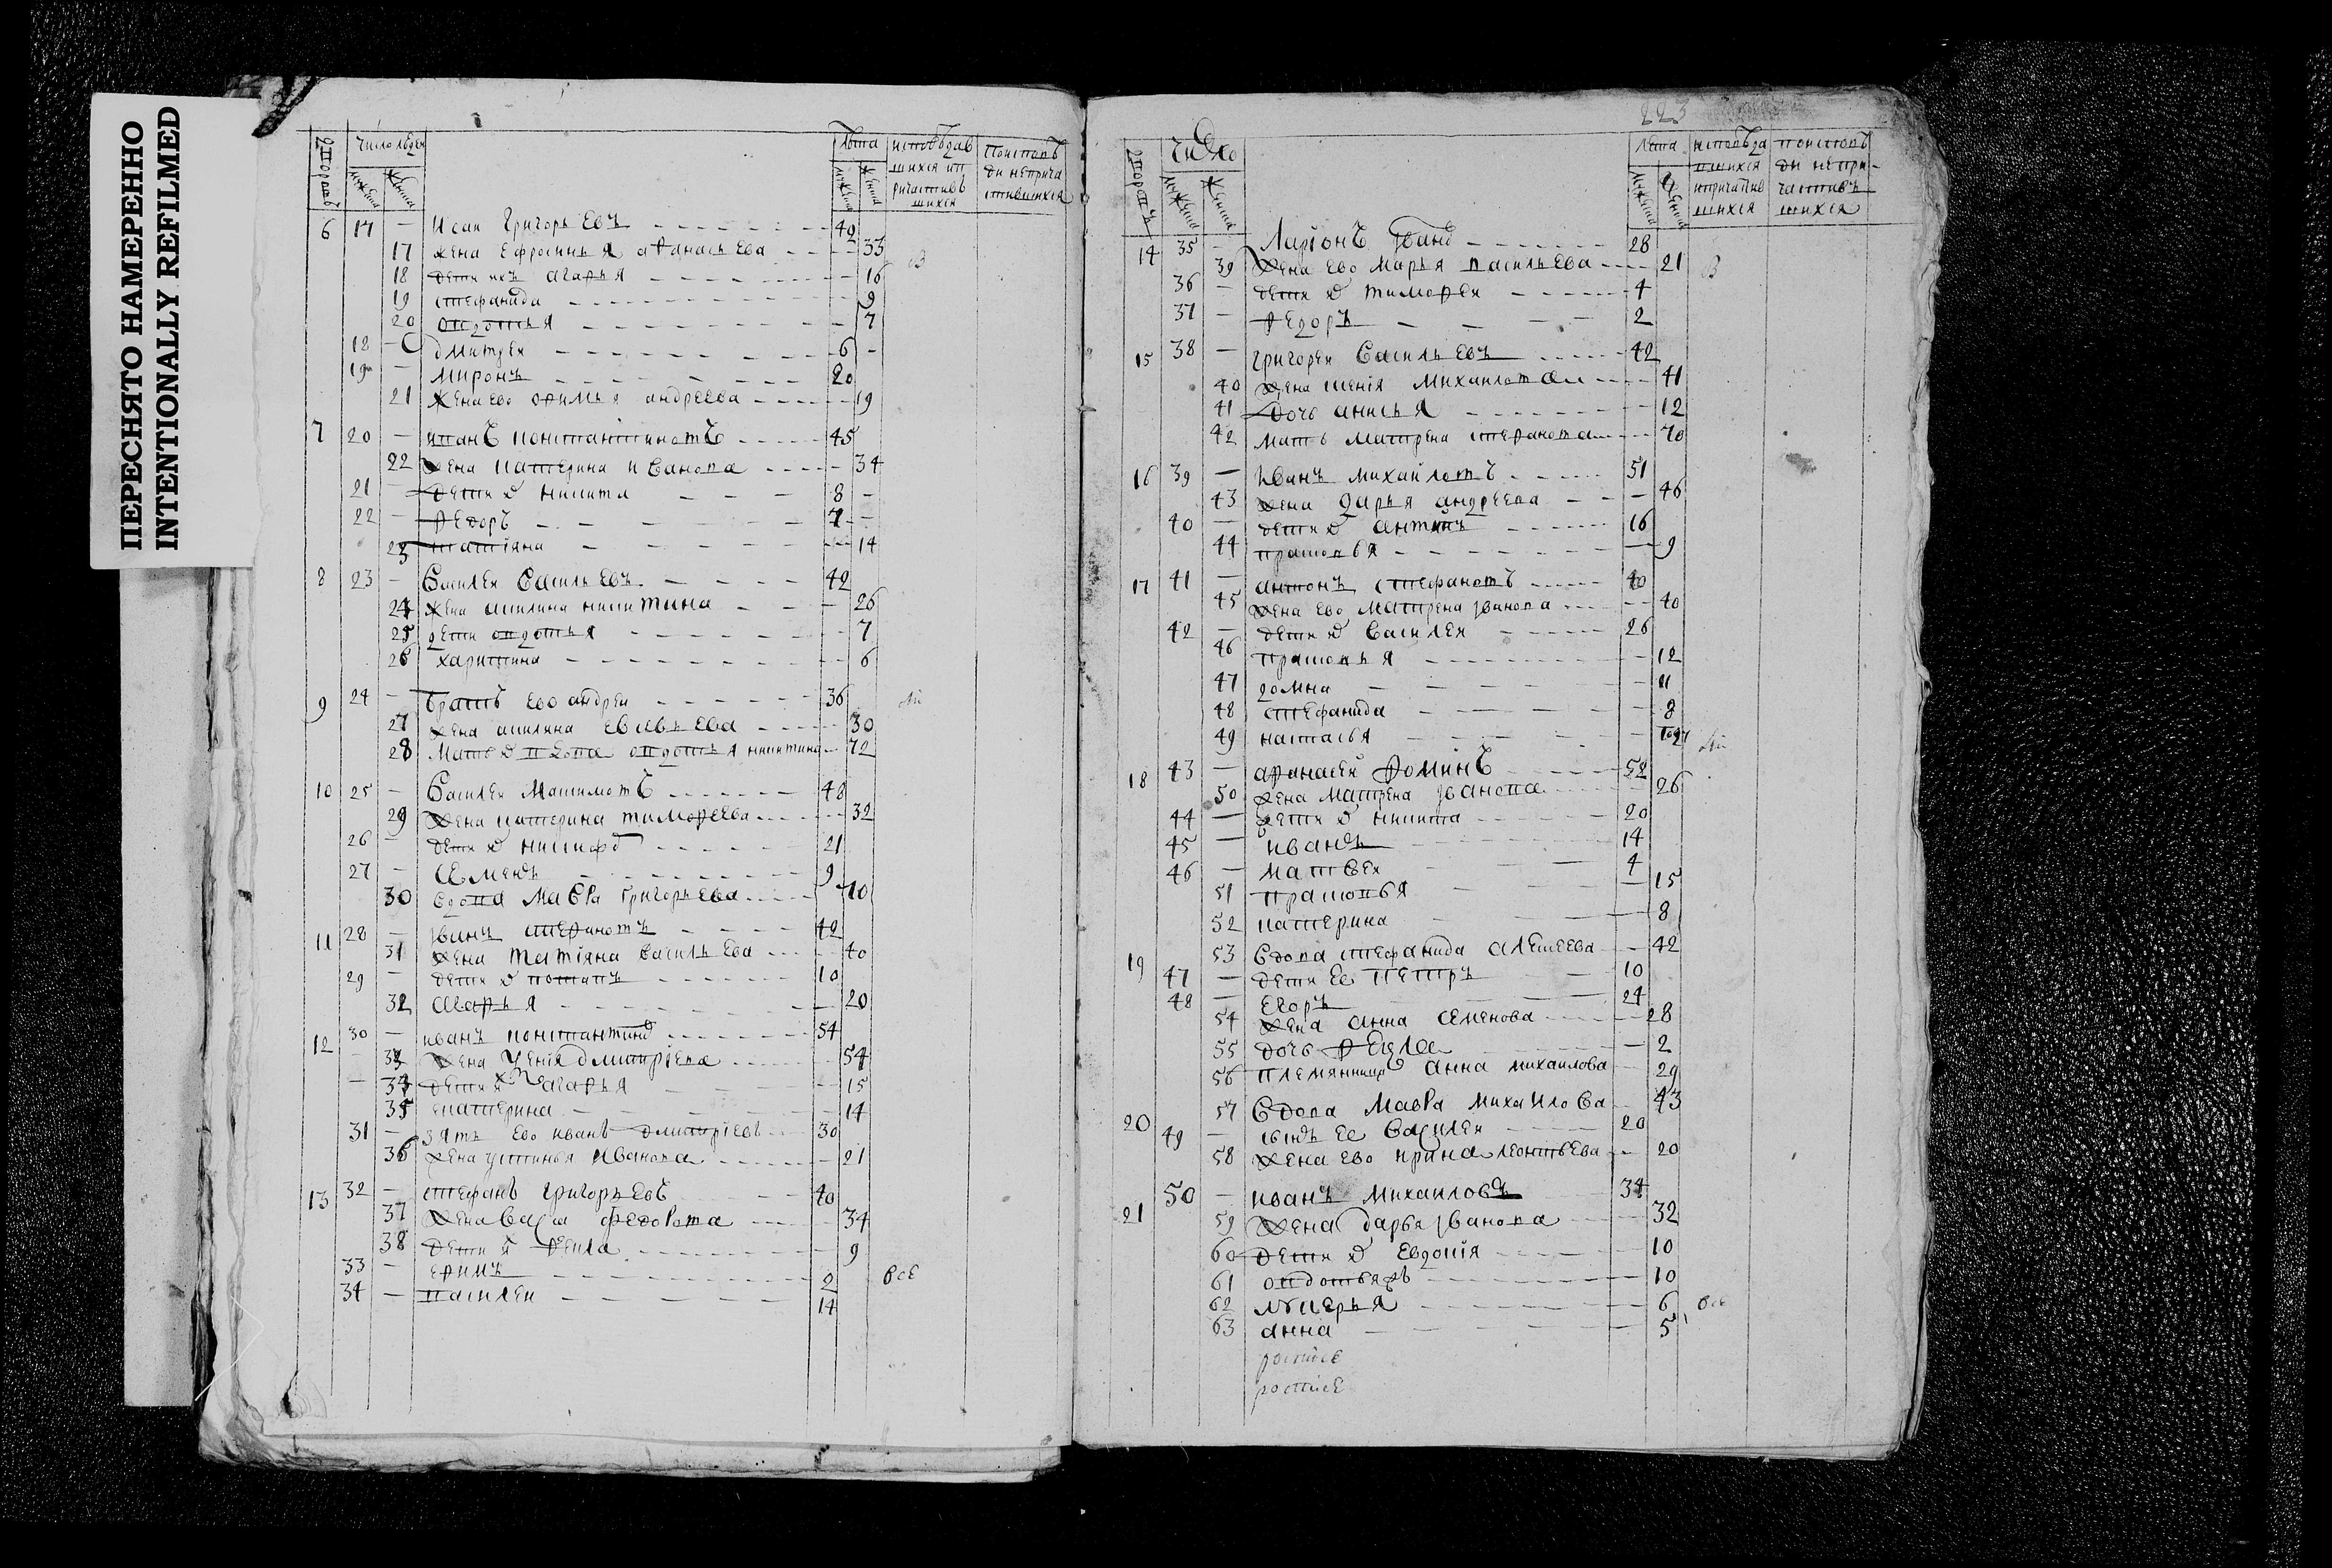 ПЕРЕСНЯТО НАМЕРЕННО
INTENTIONALLY REFILMED
число людеи лета исповедав по испове
мужеска женска мужеска женска шихся и п ди неприча
ричастив стившихся
шихся
6 17 — Исаи Григорьевъ 49
17 жена Ефросинья афанасьева 33
18 дети ихъ агафья 16
19 стефанида 9
20 овдотья 7
18 — дмитреи 6 —
19 — миронъ 20
21 жена ево офимья андреева 19
7 20 — иванъ константиновъ 45
22 жена катерина иванова 34
21 — дети никита 8 —
22 — федоръ 7
23 татияна 14
8 23 — василеи васильевъ 42
24 жена акилина никитина 26
25 дети овдотья 7
26 харитина 6
9 24 — братъ ево андреи 36
27 жена акилина евлевьева 30
28 мать вдова овдотья никитина 72
10 25 — василеи максимовъ 48
29 жена катерина тимофеева 32
26 — дети никифо 21
27 — семенъ 9
30 вдова мавра григорьева 40
11 28 — иванъ стефановъ 42
31 жена татияна васильева 40
29 — дети потапъ 10
32 агафья 20
12 30 — иванъ константи 54
33 жена дмитриева 54
34 дети агафья 15
35 екатерина 14
31 — зять ево иванъ дмитриевъ 30
36 жена устинья иванова 21
13 32 — стефанъ григорьевъ 40
37 жена васса федорова 34
38 дети фекла 9
33 — ефимъ 2 все
34 — василеи 14
223
число лета исповеда по испове
мужеска женска мужеска женска вшихся ди непри
и причастив частивъ
шихся шихся
14 35 — Ларионъ иванов 28
39 жена ево марья васильева 21
36 — дети тимофеи 4
37 — федоръ 2
15 38 — григореи васильевъ 42
40 жена ксения михаилова 41
41 дочь анисья 12
42 мать матрена стефанова 70
16 39 — иванъ михаиловъ 51
43 жена дарья андреева 46
40 — дети 16
44 прасковья 9
17 41 — антонъ стефановъ 40
45 жена ево матрена иванова 40
42 — дети василеи 26
46 прасковья 12
47 домна 11
48 стефанида 8
49 наталья
18 43 — афанасеи фоминъ 52
50 жена матрена иванова 26
44 — дети никита 20
45 — иванъ 14
46 — матвеи 4
51 прасковья 15
52 катерина 8
19 53 вдова стефанида алексеева 42
47 — дети ее петръ 10
48 — егоръ 24
54 жена анна семенова 28
55 дочь фекла 2
56 племянница анна михаилова 29
20 57 вдова мавра михаилова 43
49 — сынъ ее василеи 20
58 жена ево ирина леонтьева 20
21 50 — иванъ михаиловъ 34
59 жена дарья иванова 32
60 дети евдокия 10
61 овдотья 10
62 лукерья 6 все
63 анна 5